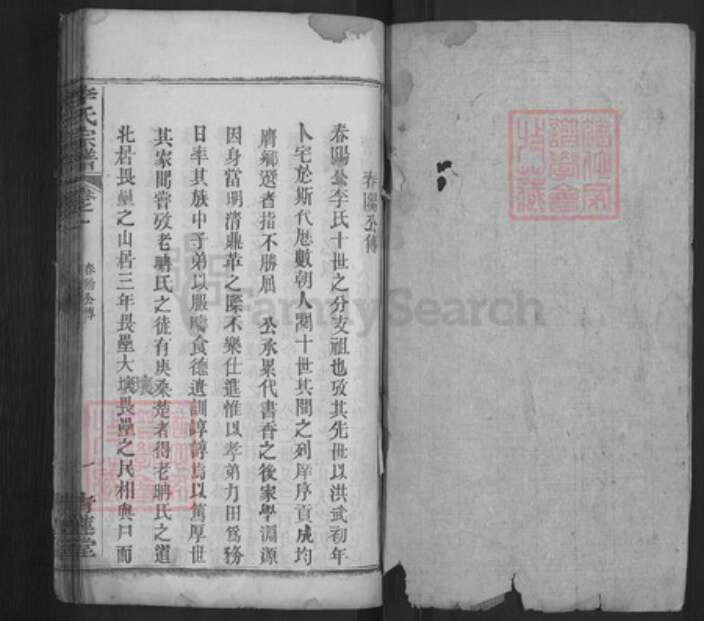 春陽公傳
春陽公李氏十世之分支祖也攷其先世以洪武初年
卜宅於斯代歷數朝人閱十世其間之列庠序貢成均
膺鄉選者指不勝屈　公承累代書香之後家學淵源
因身當明清鼎革之際不樂仕進惟以孝弟力田為務
日率其族中子弟以服疇食德遺訓諄諄焉以篤厚世
其家間嘗攷老聃氏之徒有庚桑楚者得老聃氏之道
北居畏壘之山居三年畏壘大壤畏壘之民相與尸而
壤
李氏宗譜
卷之一
春陽公傳
一
青蓮堂
FamilySearch